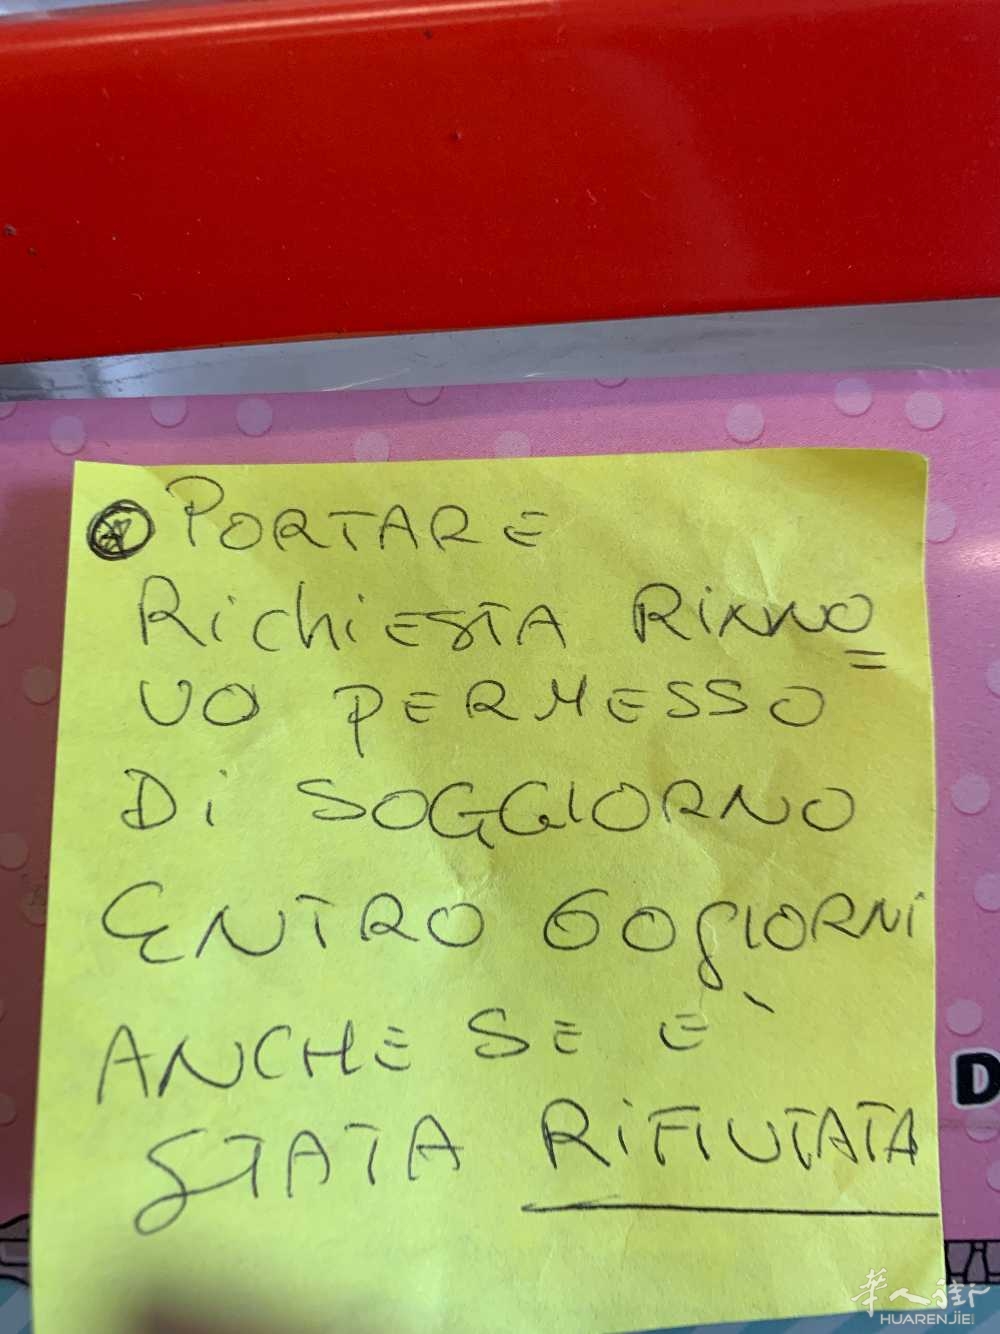 PORTARE
RichiESTA RINNO
VO PERMESSO
Di SOGGIORNO
ENTRO 60 giORNi
ANCHE SE È
STATA RiFIUTATA
D
華人街
HUARENJIE